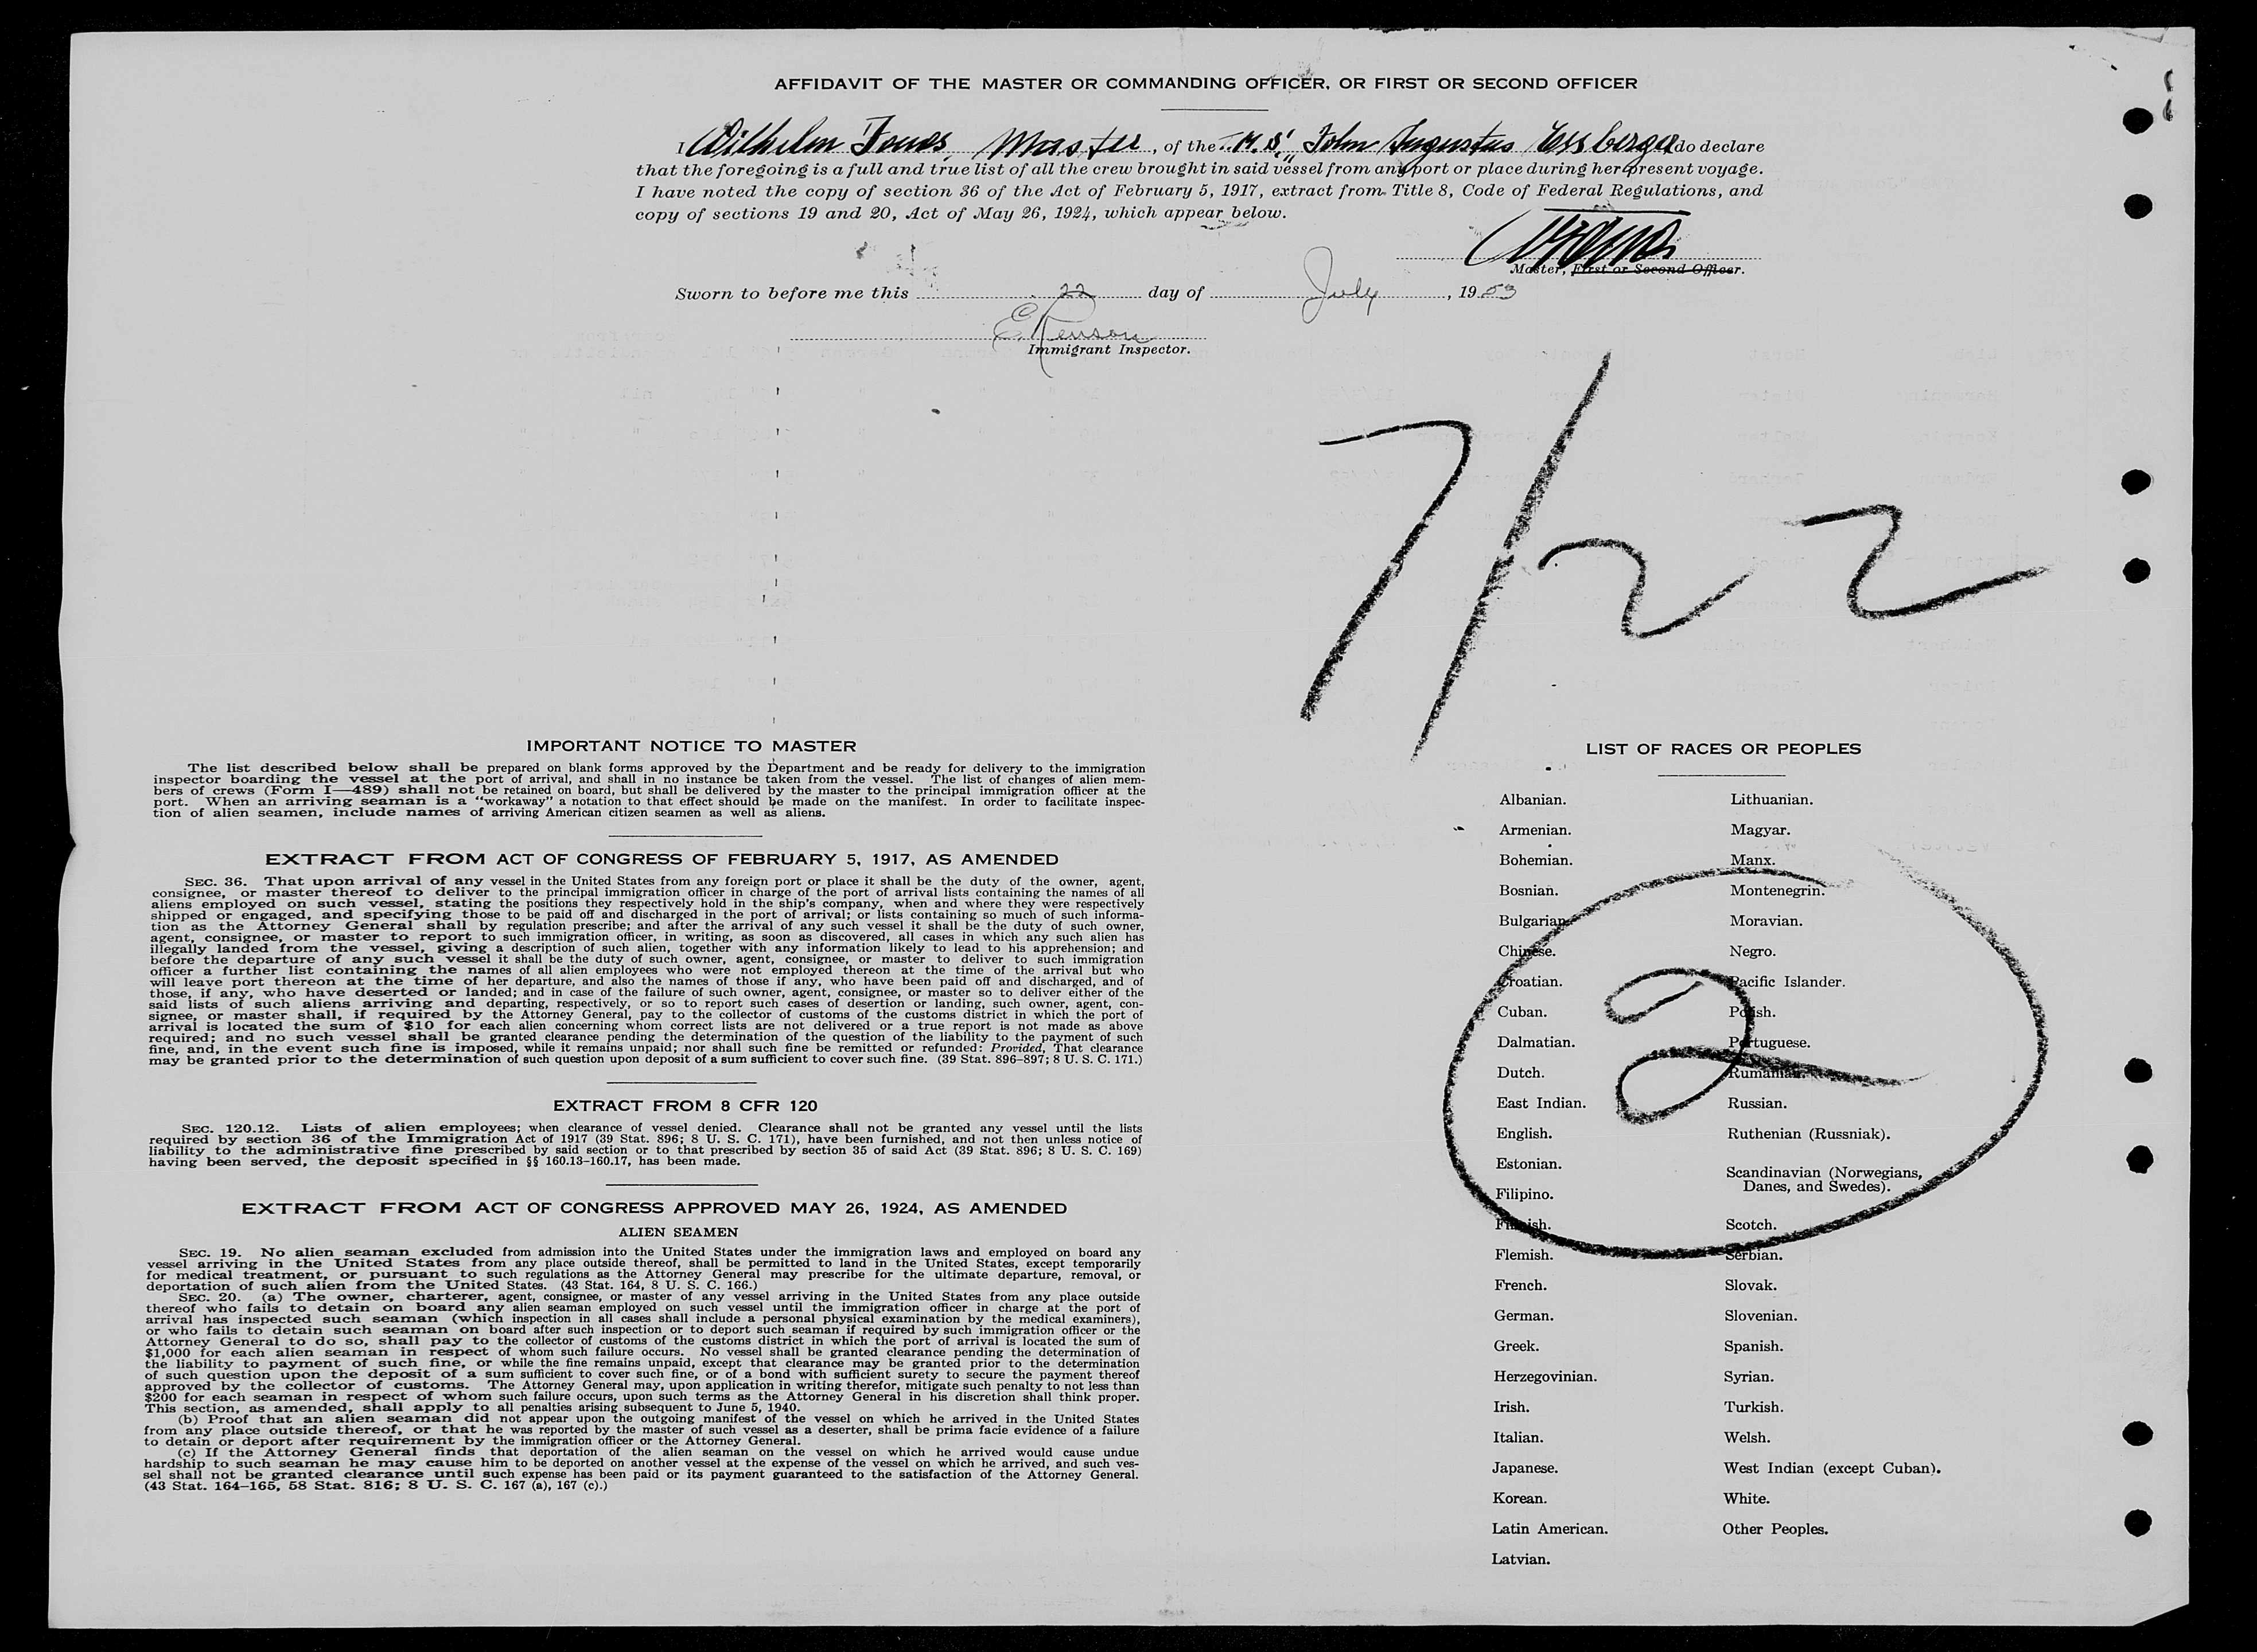 AFFIDAVIT OF THE MASTER OR COMMANDING OFFICER, OR FIRST OR SECOND OFFICER
I Wilhelm Master, of the M.S. "John Augustus Essberger do declare
that the foregoing is a full and true list of all the crew brought in said vessel from any port or place during her present voyage.
I have noted the copy of section 36 of the Act of February 5, 1917, extract from Title 8, Code of Federal Regulations, and
copy of sections 19 and 20, Act of May 26, 1924, which appear below.
Master, First or Second Officer.
Sworn to before me this 22 day of July, 1953
Immigrant Inspector.
7/22
IMPORTANT NOTICE TO MASTER
The list described below shall be prepared on blank forms approved by the Department and be ready for delivery to the immigration
inspector boarding the vessel at the port of arrival, and shall in no instance be taken from the vessel. The list of changes of alien mem-
bers of crews (Form I—489) shall not be retained on board, but shall be delivered by the master to the principal immigration officer at the
port. When an arriving seaman is a "workaway" a notation to that effect should be made on the manifest. In order to facilitate inspec-
tion of alien seamen, include names of arriving American citizen seamen as well as aliens.
EXTRACT FROM ACT OF CONGRESS OF FEBRUARY 5, 1917, AS AMENDED
SEC. 36. That upon arrival of any vessel in the United States from any foreign port or place it shall be the duty of the owner, agent,
consignee, or master thereof to deliver to the principal immigration officer in charge of the port of arrival lists containing the names of all
aliens employed on such vessel, stating the positions they respectively hold in the ship's company, when and where they were respectively
shipped or engaged, and specifying those to be paid off and discharged in the port of arrival; or lists containing so much of such informa-
tion as the Attorney General shall by regulation prescribe; and after the arrival of any such vessel it shall be the duty of such owner,
agent, consignee, or master to report to such immigration officer, in writing, as soon as discovered, all cases in which any such alien has
illegally landed from the vessel, giving a description of such alien, together with any information likely to lead to his apprehension; and
before the departure of any such vessel it shall be the duty of such owner, agent, consignee, or master to deliver to such immigration
officer a further list containing the names of all alien employees who were not employed thereon at the time of the arrival but who
will leave port thereon at the time of her departure, and also the names of those if any, who have been paid off and discharged, and of
those, if any, who have deserted or landed; and in case of the failure of such owner, agent, consignee, or master so to deliver either of the
said lists of such aliens arriving and departing, respectively, or so to report such cases of desertion or landing, such owner, agent, con-
signee, or master shall, if required by the Attorney General, pay to the collector of customs of the customs district in which the port of
arrival is located the sum of $10 for each alien concerning whom correct lists are not delivered or a true report is not made as above
required; and no such vessel shall be granted clearance pending the determination of the question of the liability to the payment of such
fine, and, in the event such fine is imposed, while it remains unpaid; nor shall such fine be remitted or refunded: Provided, That clearance
may be granted prior to the determination of such question upon deposit of a sum sufficient to cover such fine. (39 Stat. 896–897; 8 U. S. C. 171.)
EXTRACT FROM 8 CFR 120
SEC. 120.12. Lists of alien employees; when clearance of vessel denied. Clearance shall not be granted any vessel until the lists
required by section 36 of the Immigration Act of 1917 (39 Stat. 896; 8 U. S. C. 171), have been furnished, and not then unless notice of
liability to the administrative fine prescribed by said section or to that prescribed by section 35 of said Act (39 Stat. 896; 8 U. S. C. 169)
having been served, the deposit specified in §§ 160.13–160.17, has been made.
EXTRACT FROM ACT OF CONGRESS APPROVED MAY 26, 1924, AS AMENDED
ALIEN SEAMEN
SEC. 19. No alien seaman excluded from admission into the United States under the immigration laws and employed on board any
vessel arriving in the United States from any place outside thereof, shall be permitted to land in the United States, except temporarily
for medical treatment, or pursuant to such regulations as the Attorney General may prescribe for the ultimate departure, removal, or
deportation of such alien from the United States. (43 Stat. 164, 8 U. S. C. 166.)
SEC. 20. (a) The owner, charterer, agent, consignee, or master of any vessel arriving in the United States from any place outside
thereof who fails to detain on board any alien seaman employed on such vessel until the immigration officer in charge at the port of
arrival has inspected such seaman (which inspection in all cases shall include a personal physical examination by the medical examiners),
or who fails to detain such seaman on board after such inspection or to deport such seaman if required by such immigration officer or the
Attorney General to do so, shall pay to the collector of customs of the customs district in which the port of arrival is located the sum of
$1,000 for each alien seaman in respect of whom such failure occurs. No vessel shall be granted clearance pending the determination of
the liability to payment of such fine, or while the fine remains unpaid, except that clearance may be granted prior to the determination
of such question upon the deposit of a sum sufficient to cover such fine, or of a bond with sufficient surety to secure the payment thereof
approved by the collector of customs. The Attorney General may, upon application in writing therefor, mitigate such penalty to not less than
$200 for each seaman in respect of whom such failure occurs, upon such terms as the Attorney General in his discretion shall think proper.
This section, as amended, shall apply to all penalties arising subsequent to June 5, 1940.
(b) Proof that an alien seaman did not appear upon the outgoing manifest of the vessel on which he arrived in the United States
from any place outside thereof, or that he was reported by the master of such vessel as a deserter, shall be prima facie evidence of a failure
to detain or deport after requirement by the immigration officer or the Attorney General.
(c) If the Attorney General finds that deportation of the alien seaman on the vessel on which he arrived would cause undue
hardship to such seaman he may cause him to be deported on another vessel at the expense of the vessel on which he arrived, and such ves-
sel shall not be granted clearance until such expense has been paid or its payment guaranteed to the satisfaction of the Attorney General.
(43 Stat. 164–165, 58 Stat. 816; 8 U. S. C. 167 (a), 167 (c).)
LIST OF RACES OR PEOPLES
Albanian.
Armenian.
Bohemian.
Bosnian.
Bulgarian.
Chinese.
Croatian.
Cuban.
Dalmatian.
Dutch.
East Indian.
English.
Estonian.
Filipino.
Finnish.
Flemish.
French.
German.
Greek.
Herzegovinian.
Irish.
Italian.
Japanese.
Korean.
Latin American.
Latvian.
Lithuanian.
Magyar.
Manx.
Montenegrin.
Moravian.
Negro.
Pacific Islander.
Polish.
Portuguese.
Rumanian.
Russian.
Ruthenian (Russniak).
Scandinavian (Norwegians,
Danes, and Swedes).
Scotch.
Serbian.
Slovak.
Slovenian.
Spanish.
Syrian.
Turkish.
Welsh.
West Indian (except Cuban).
White.
Other Peoples.
2